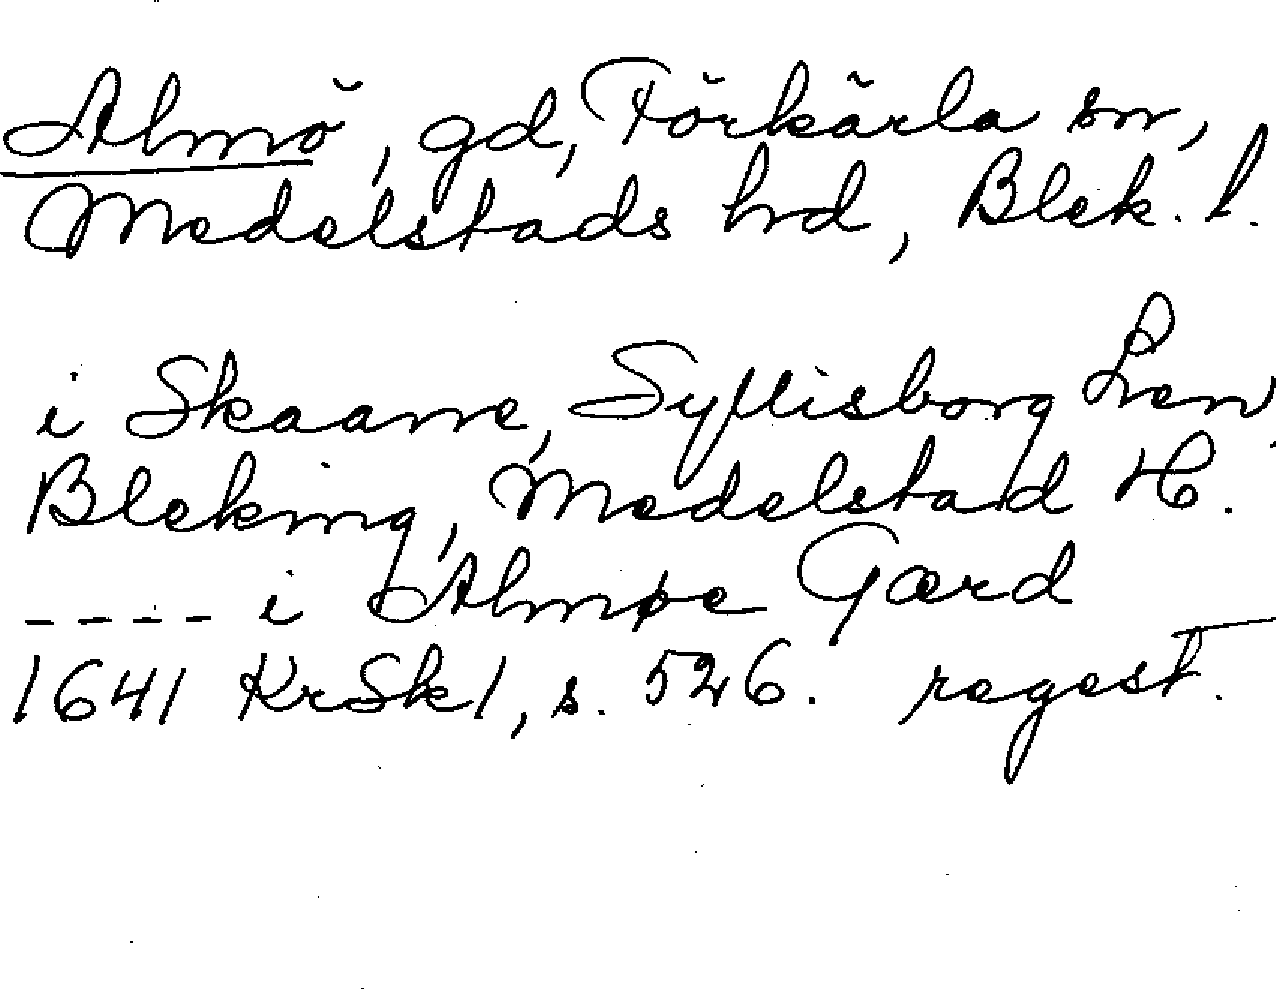 Almö, gd, Förkärla sn,
Medelstads hrd, Blek. l.
i Skaane, Syllisborg Len,
Bleking, Medelstad H.
---- i Almøe Gærd
1641 KrSk1, s. 526. regest.